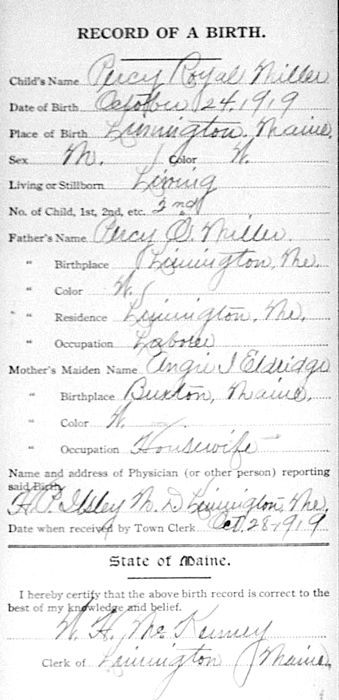 RECORD OF A BIRTH.
Child's Name Percy Royal Miller
Date of Birth October 24, 1919
Place of Birth Limington, Maine,
Sex M. Color W.
Living or Stillborn Living
No. of Child, 1st, 2nd, etc. 2nd
Father's Name Percy O. Miller
" Birthplace Limington, Me.
" Color W.
" Residence Limington, Me,
" Occupation Laborer
Mother's Maiden Name Angie I Eldridge
" Birthplace Buxton, Maine,
" Color W.
" Occupation Housewife
Name and address of Physician (or other person) reporting
said Birth
H. P. Ilsley M. D Limington, Me.
Date when received by Town Clerk Oct. 28-1919
State of Maine.
I hereby certify that the above birth record is correct to the
best of my knowledge and belief.
W. H. Mc Kenney
Clerk of Limington Maine